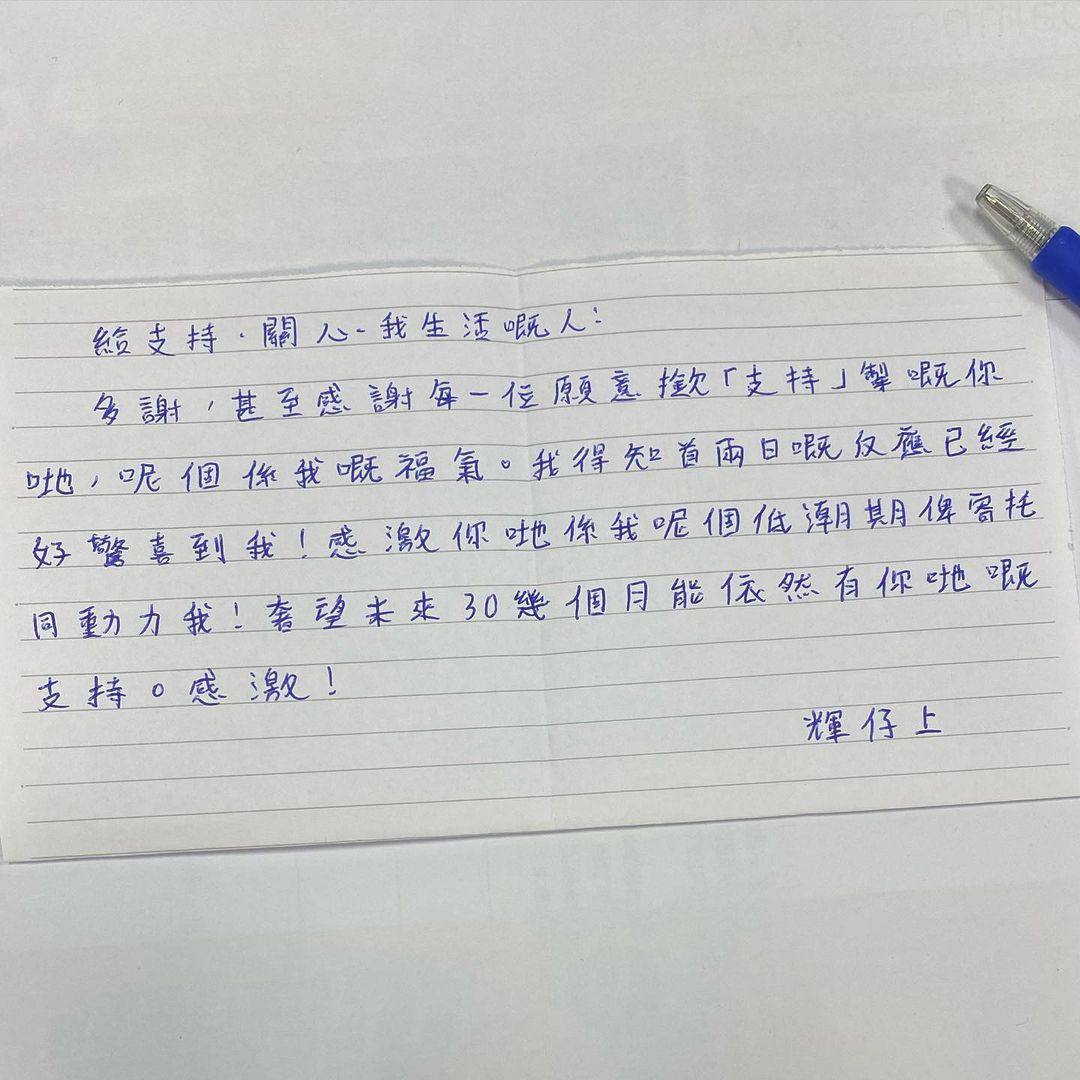 給支持、關心我生活嘅人:
多謝,甚至感謝每一位願意撳「支持」掣嘅你
哋,呢個係我嘅福氣。我得知首兩日嘅反應已經
好驚喜到我!感激你哋係我呢個低潮期俾寄托
同動力我!奢望未來30幾個月能依然有你哋嘅
支持。感激!
輝仔上